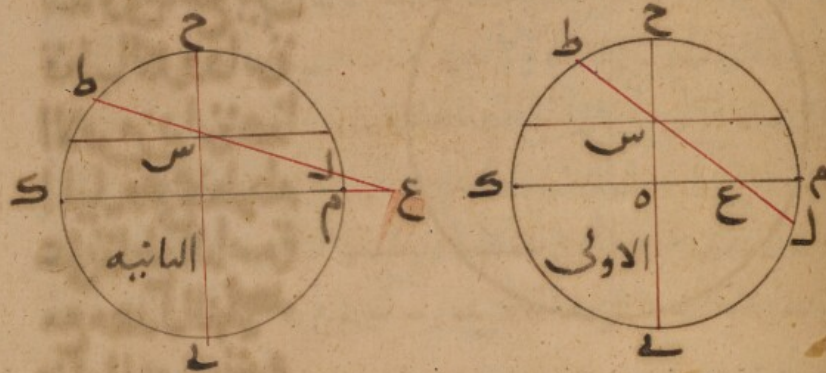 ح
ط
س
ك
ه
ع
م
ل
الاولى
ح
ط
س
ك
ل
م
ع
الثانيه